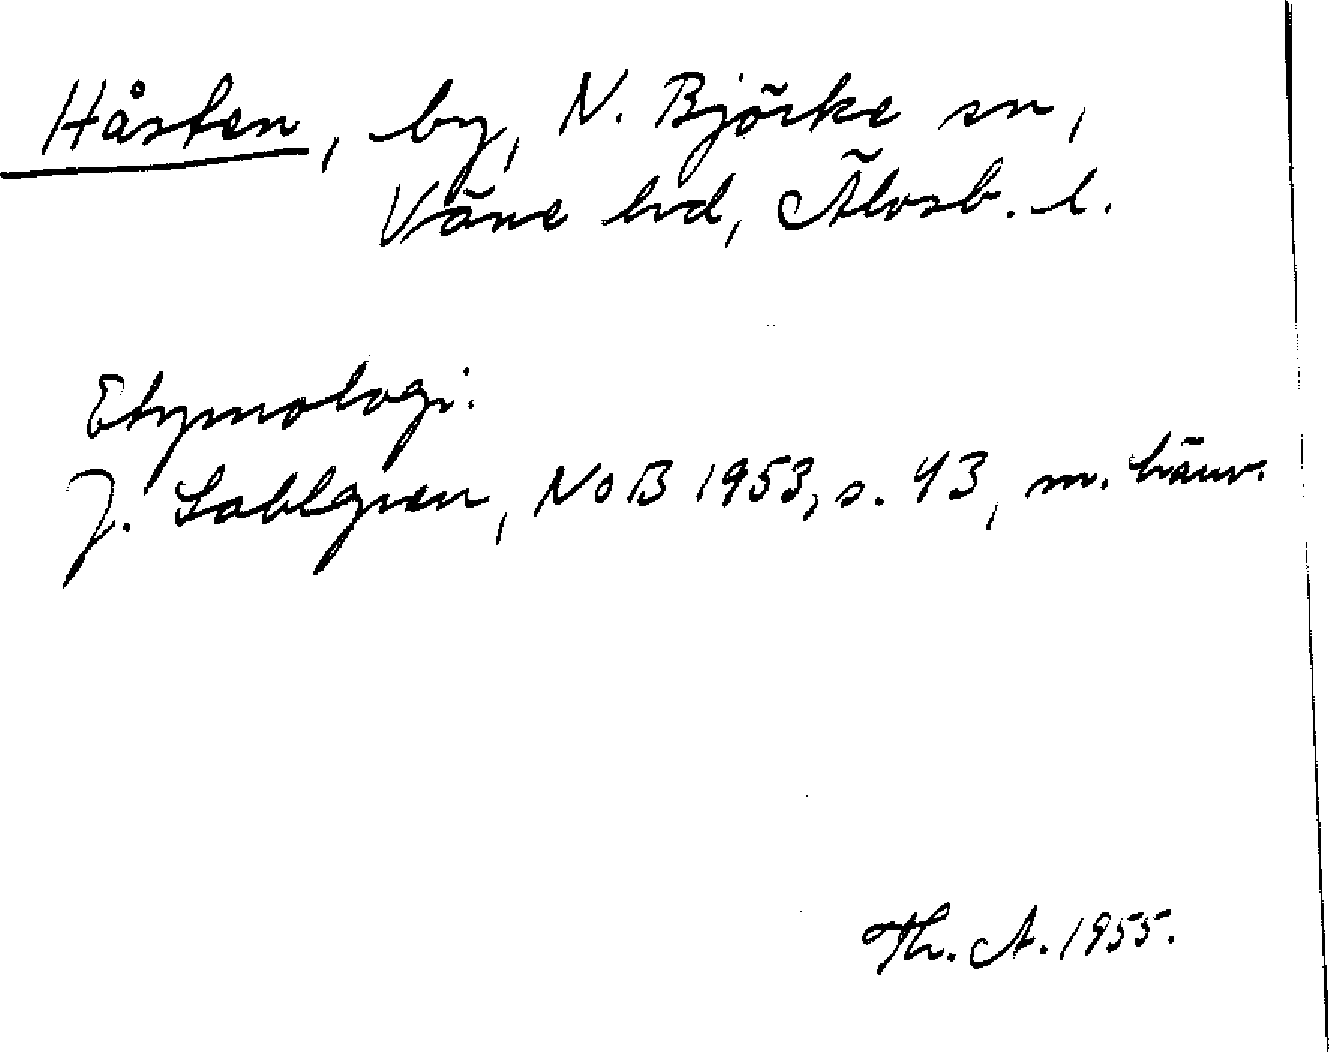 Håsten, by, N. Björke sn,
Väne hd, Älvsb. l.
Etymologi.
J. Sahlgren, NoB 1953, s. 43, m. hänv.
Th. A. 1955.